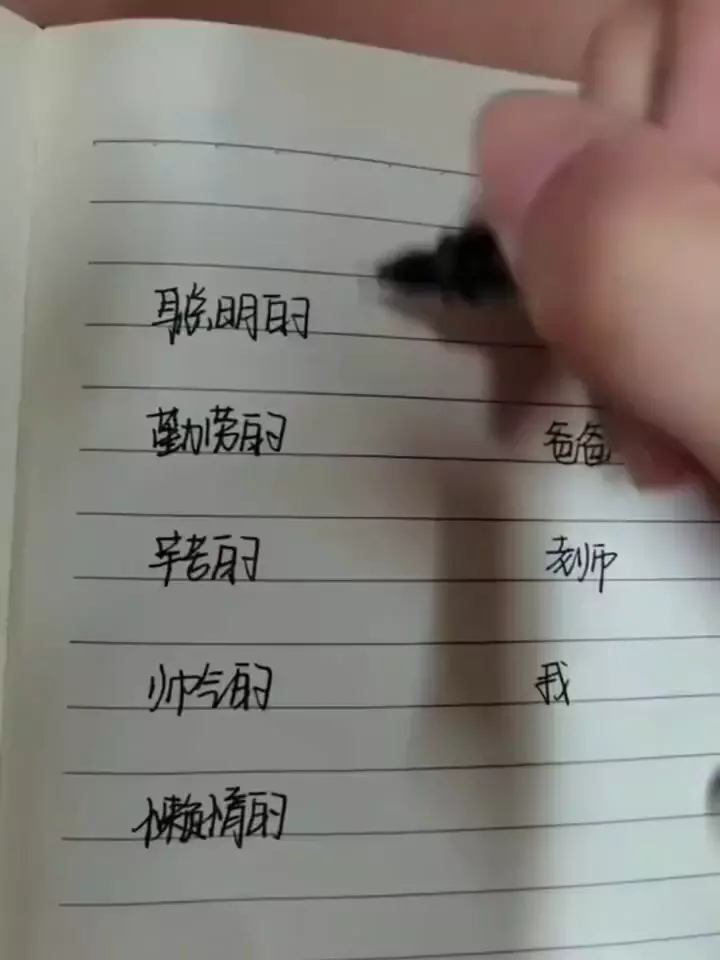 聪明的
勤劳的 爸爸
辛苦的 老师
帅气的 我
懒惰的